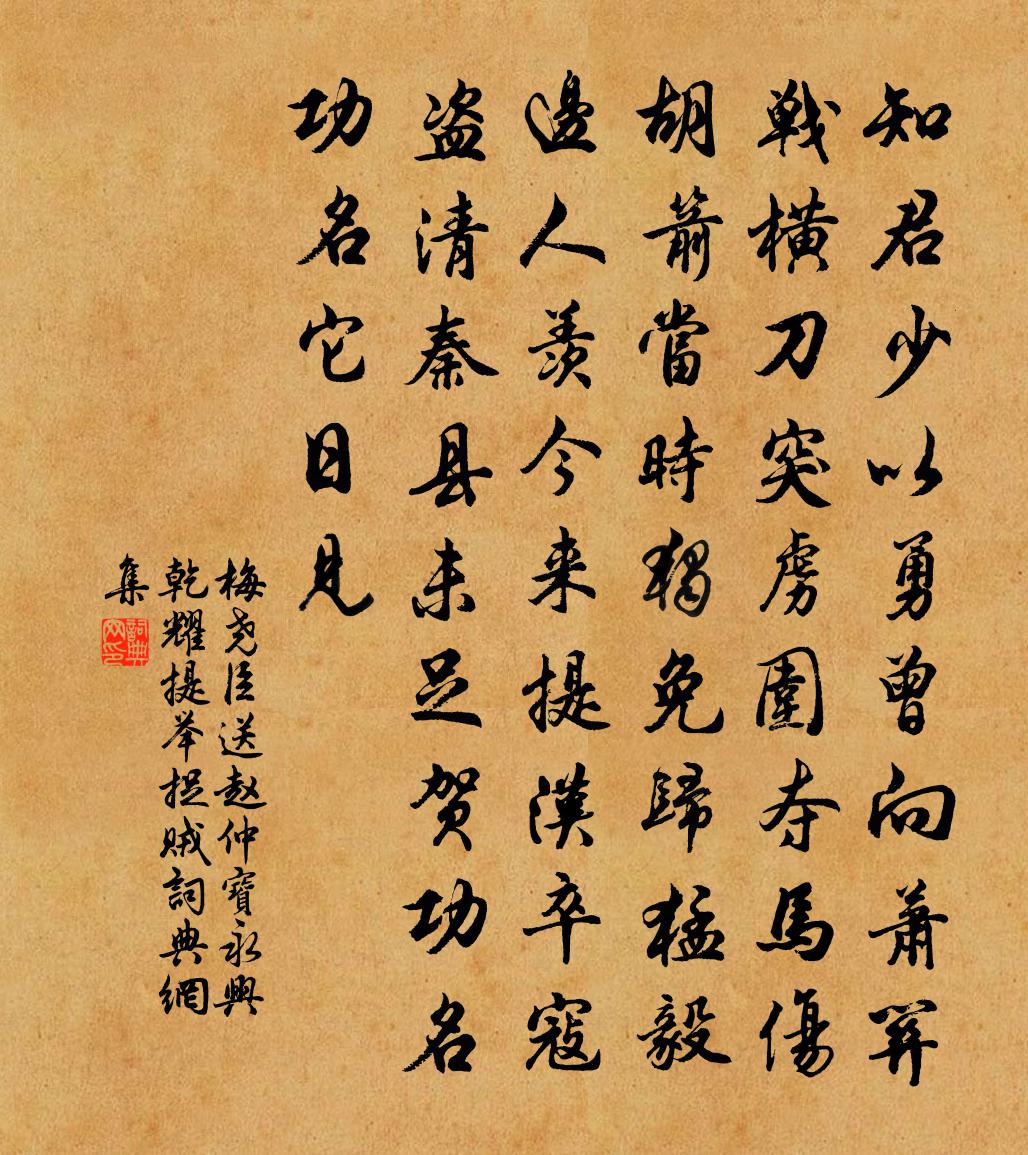 知君少以勇曾向萧关
戰橫刀突虜圍夺馬傷
胡箭當時獨免歸猛毅
邊人羨今来提漢卒寇
盗清秦县未足贺功名
功名它日見
梅尧臣送赵仲寶永興
乾耀提举捉贼詞典網
集
詞典網印